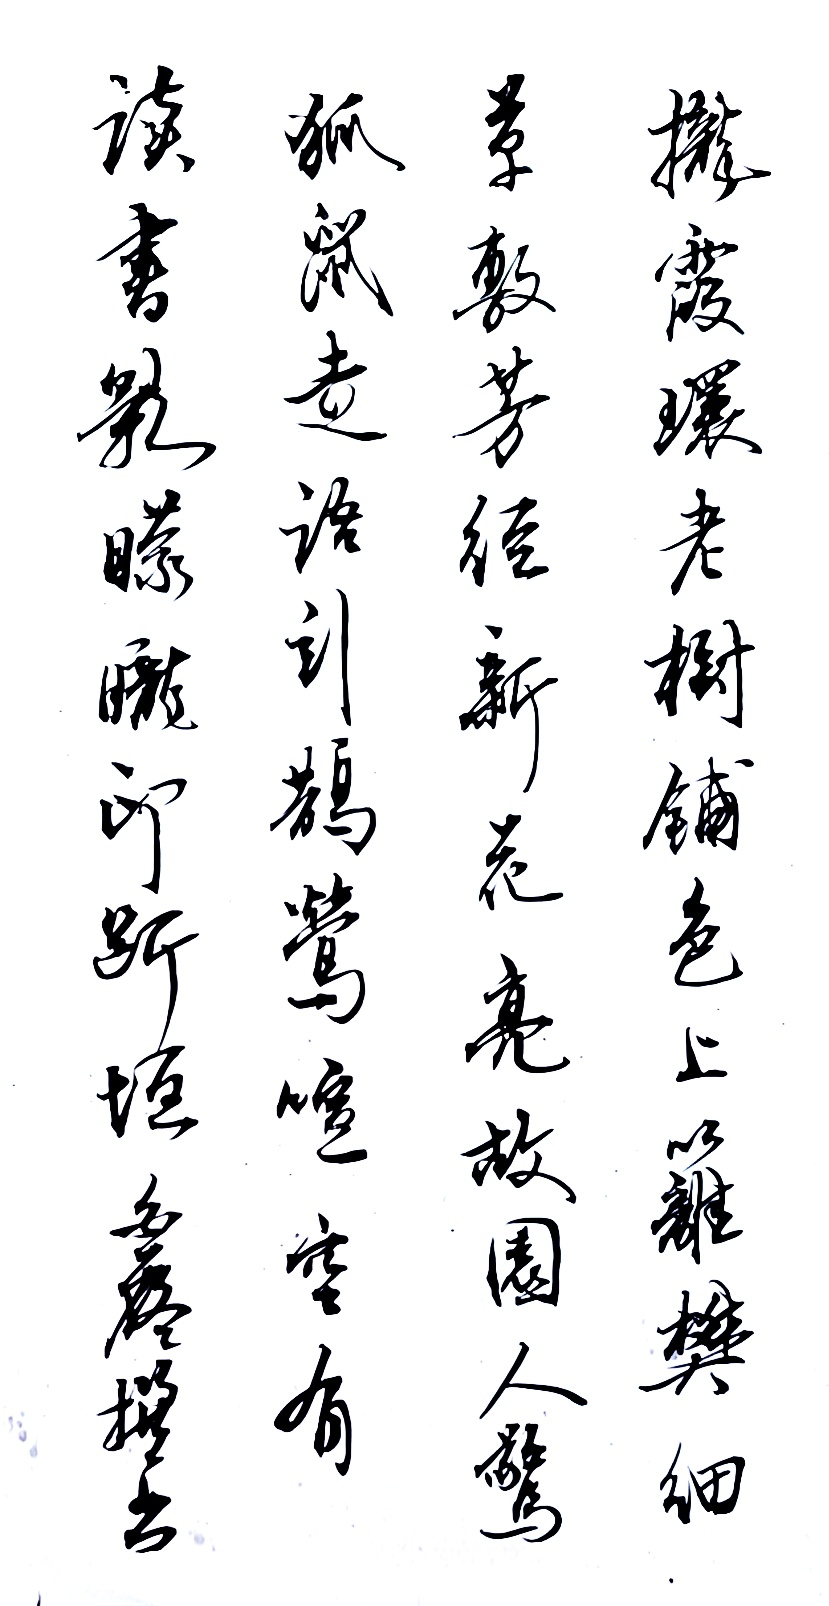 攏霞環老樹鋪色上籬樊細
草敷芳徑新花亮故園人驚
狐鼠走語引鵲鶯喧空有
讀書影矇矓印斷垣